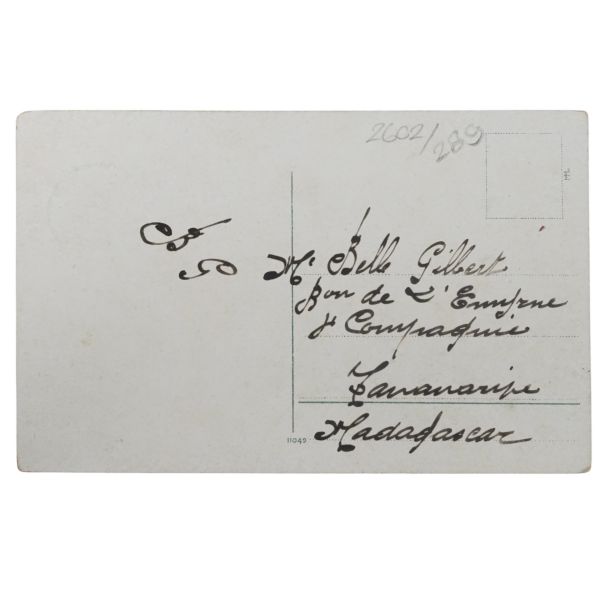 2602/289
Mr Belle Gilbert
Bon de L'Emyrne
1e Compagnie
Tananarive
Madagascar
11049